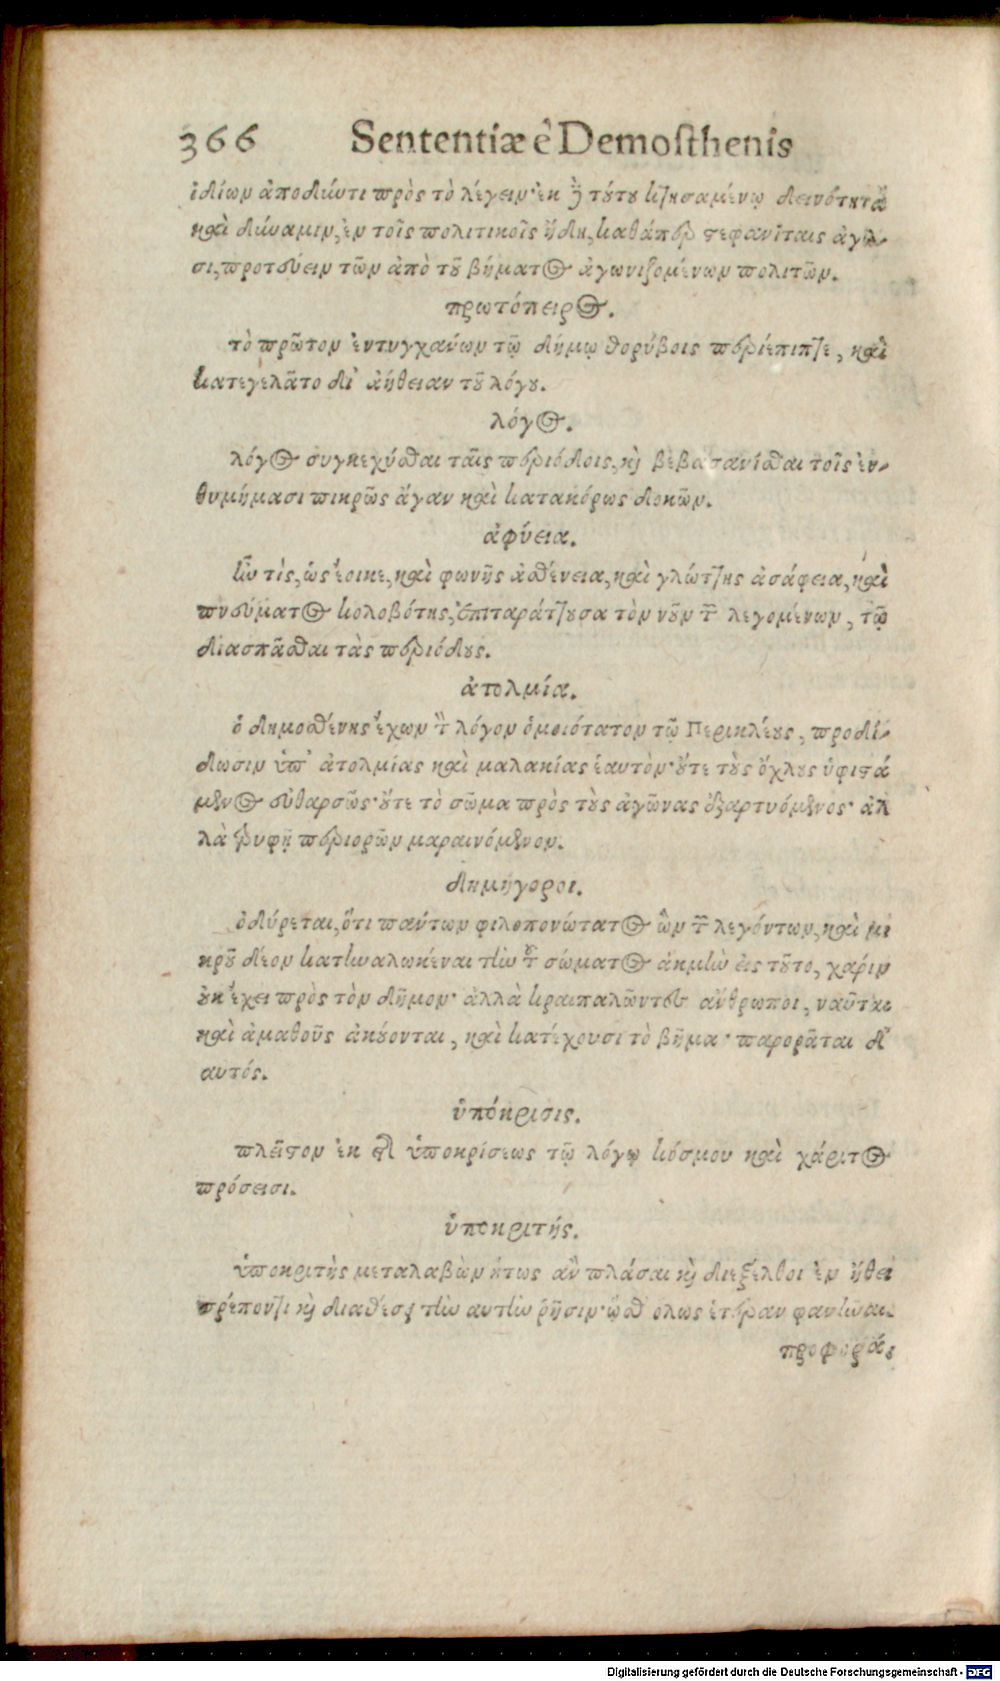 366 Sententiæ è Demosthenis
ἰδίων ἀποδιώντι πρὸς τὸ λέγειν· ἐκ ἢ τύτου κτησαμένῳ δεινότητα
καὶ δύναμιν, ἐν τοῖς πολιτικοῖς ἤδη, καθάπερ στεφανίταις ἀγῶ-
σι, πρωτεύειν τῶν ἀπὸ τοῦ βήματος ἀγωνιζομένων πολιτῶν.
πρωτόπειρος.
τὸ πρῶτον ἐντυγχάνων τῷ δήμῳ θορύβοις περιέπιπτε, καὶ
κατεγελᾶτο δι' ἀήθειαν τοῦ λόγου.
λόγος.
λόγος συγκεχύσθαι ταῖς περιόδοις, καὶ βεβασανίσθαι τοῖς ἐν-
θυμήμασι πικρῶς ἄγαν καὶ κατακόρως δοκῶν.
ἀφύεια.
ἦν τὶς, ὡς ἔοικε, καὶ φωνῆς ἀσθένεια, καὶ γλώττης ἀσάφεια, καὶ
πνεύματος κολοβότης, ἐπιταράττουσα τὸν νοῦν τῶν λεγομένων, τῷ
διασπᾶσθαι τὰς περιόδους.
ἀτολμία.
ὁ δημοσθένης ἔχων τὸν λόγον ὁμοιότατον τῷ Περικλέους, προδί-
δωσιν ὑπ' ἀτολμίας καὶ μαλακίας ἑαυτόν· οὔτε τοὺς ὄχλους ὑφιστά
μενος εὐθαρσῶς· οὔτε τὸ σῶμα πρὸς τοὺς ἀγῶνας ἐξαρτυόμενος· ἀλ
λὰ τρυφῇ περιορῶν μαραινόμενον.
δημήγοροι.
ὀδύρεται, ὅτι πάντων φιλοπονώτατος ὢν τῶν λεγόντων, καὶ μι
κροῦ δέον καταναλωκέναι τὴν τοῦ σώματος ἀκμὴν εἰς τοῦτο, χάριν
οὐκ ἔχει πρὸς τὸν δῆμον· ἀλλὰ κραιπαλῶντες ἄνθρωποι, ναῦται
καὶ ἀμαθοῦς ἀκούονται, καὶ κατέχουσι τὸ βῆμα· παρορᾶται δ'
αυτός.
ὑπόκρισις.
πλεῖστον ἐκ τῆς ὑποκρίσεως τῷ λόγῳ κόσμου καὶ χάριτος
πρόσεισι.
ὑποκριτής.
ὑποκριτὴς μεταλαβὼν οὕτως ἂν πλάσαι καὶ διεξέλθοι ἐν ἤθει
πρέποντι καὶ διαθέσει τὴν αυτὴν ῥῆσιν· ὥσθ' ολως ἑτέραν φανῆναι.
προφοράς
Digitalisierung gefördert durch die Deutsche Forschungsgemeinschaft - DFG